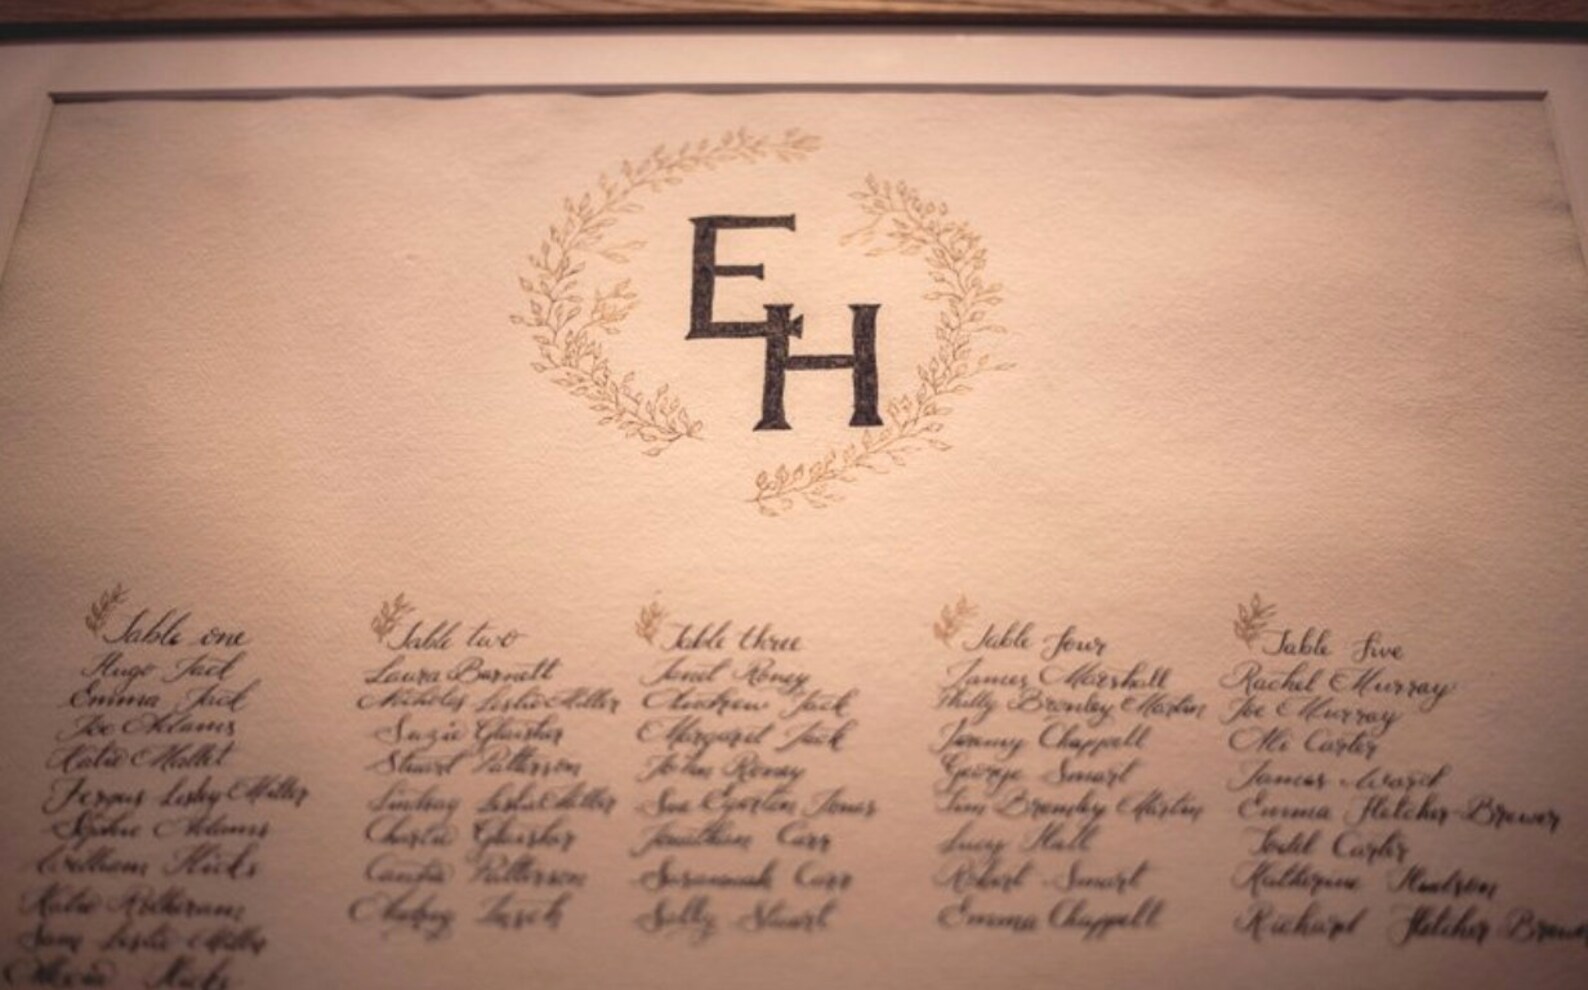 E
H
Table one
Hugo Jack
Emma Jack
Joe Adams
Katie Mallet
Fergus Lesley Miller
Sophie Adams
William Hicks
Katie
Sam Leslie Miller
Hicks
Table two
Laura Barnett
Nicholas Leslie Miller
Suzie Glaisher
Stuart Patterson
Lindsay Leslie Miller
Charlie Glaisher
Patterson
Table three
Janet Roney
Andrew Jack
Margaret Jack
John Roney
Sue Egerton Jones
Jonathan Carr
Susannah Carr
Sally Stuart
Table four
James Marshall
Philly Bromley Martin
Jeremy Chappell
George Smart
Tim Bromley Martin
Lucy Hall
Robert Smart
Emma Chappell
Table five
Rachel Murray
Joe Murray
Ali Carter
James Award
Emma Fletcher-Brewer
Todd Carter
Katherine Hudson
Richard Fletcher Brewer